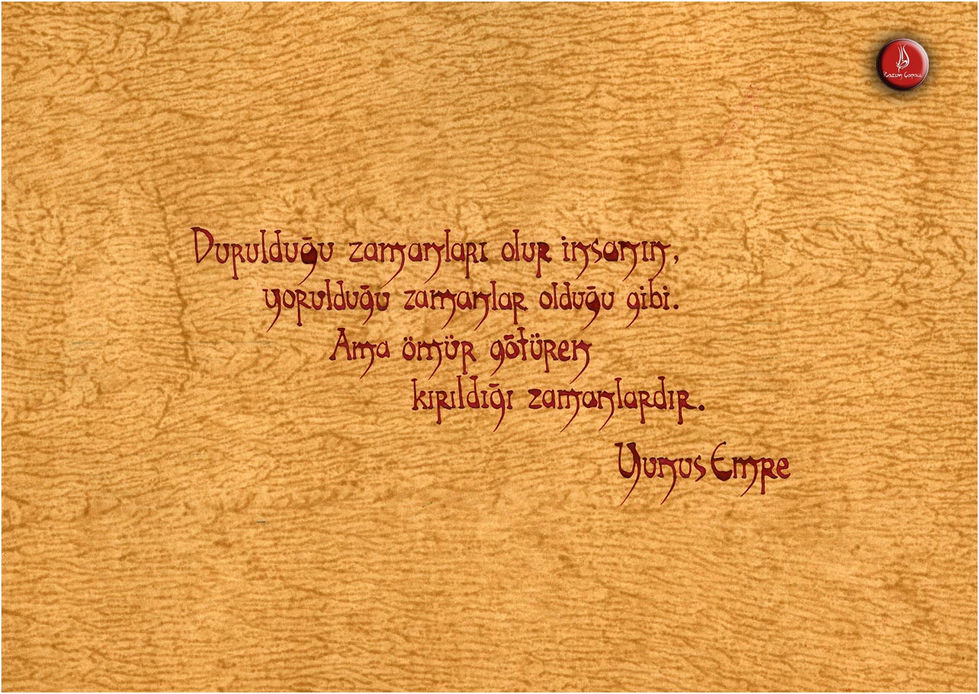 Durulduğu zamanları olur insanın,
yorulduğu zamanlar olduğu gibi.
Ama ömür götüren
kırıldığı zamanlardır.
Yunus Emre